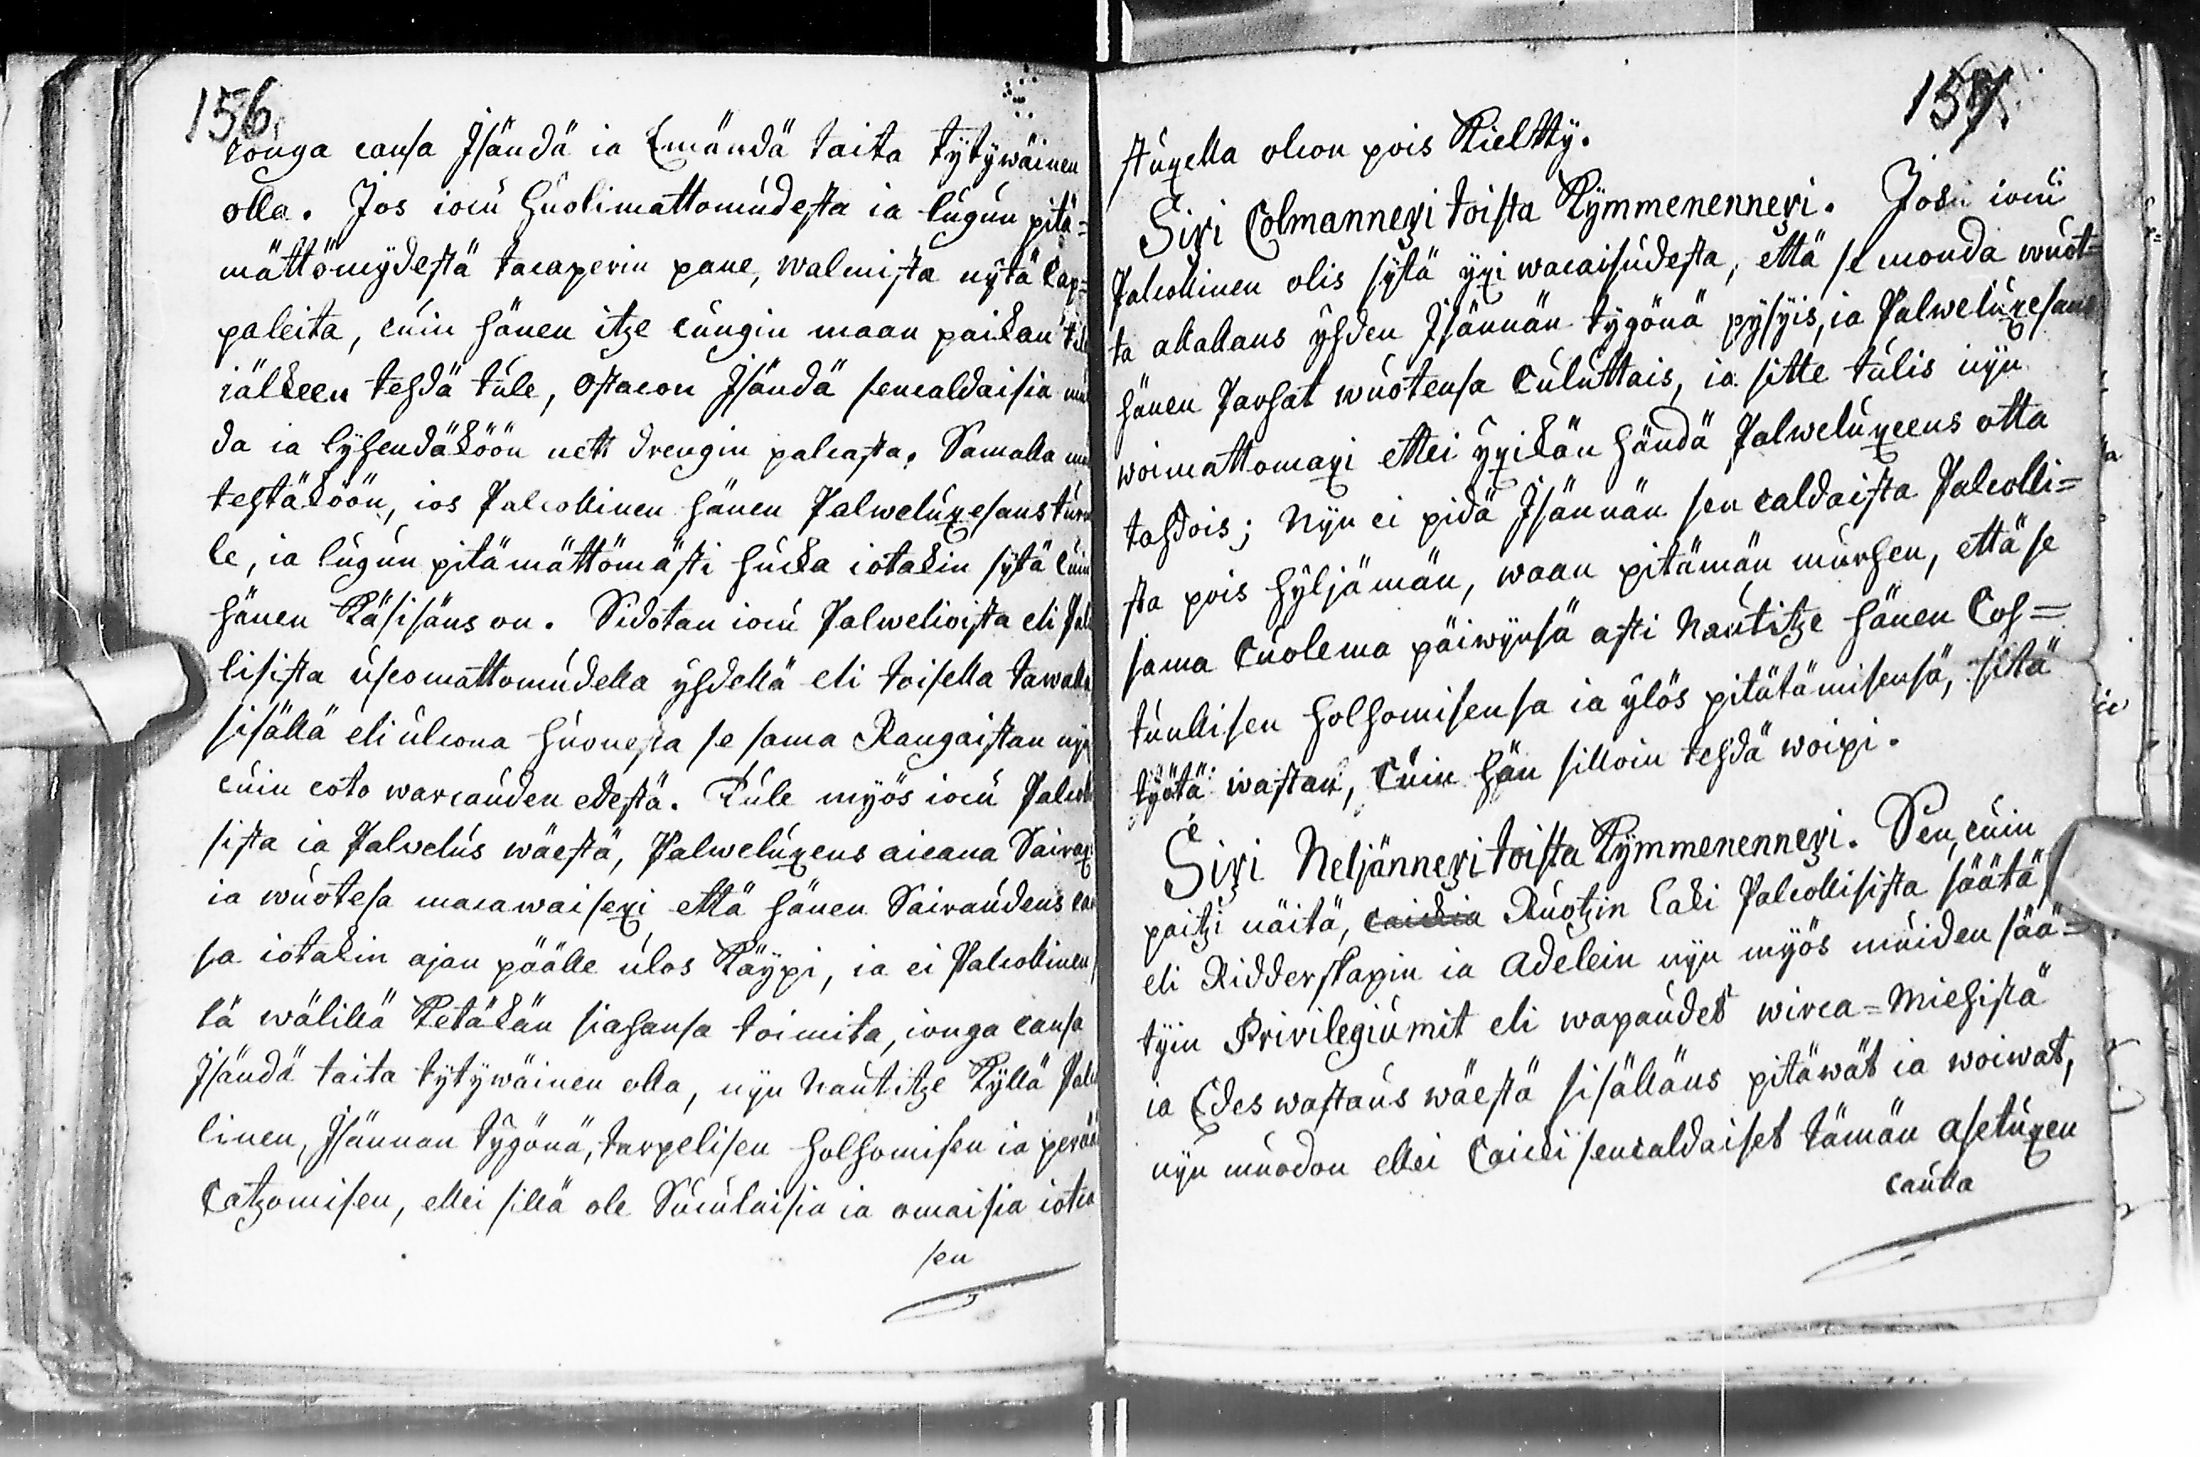 156.
jonga cansa Isändä ia Emändä taita tytywäinen
olla. Jos iocu huolimattomudesta ia lugun pitä=
mättömydestä tacaperin pane, walmista nijtä Cap=
paleita, cuin hänen itze cungin maan paikan
iälkeen tehdä tule, ostacon Isändä sencaldaisia
da ia lyhendäköön nett drengin palcasta. Samalla
tehtäköön, ios Palcollinen hänen Palweluxesans
le, ia lugun pitämättömästi hucka iotakin sijtä cuin
hänen Käsisäns on. Sidotan iocu Palwelioista eli
lisista uscomattomudella yhdellä eli toisella tawalla
sisällä eli ulcona huonesta se sama Rangaistan nijn
cuin coto warcauden edestä. Tule myös iocu
sista ia Palvelus wäestä, Palweluxens aicana Sairaxi
ia wuotesa macawaisexi että hänen Sairaudens
sa iotakin ajan päälle ulos Käypi, ia ei Palcollinen
lä wälillä Ketäkän siahansa toimita, ionga cansa
Isändä taita tytywäinen olla, nijn nautitze Kyllä
linen, Isännän tygönä, tarpelisen holhomisen ia
Catzomisen, ellei sillä ole Suculaisia ia omaisia iotca
sen
157.
stuxella olcon pois Kieltty.
Sixi Colmannexi toista Kymmenennexi. Jos iocu
Palcollinen olis sijtä yxi wacaisudesta, että se monda wuot=
ta allallans yhden Isännän tygönä pysyis, ia Palweluxesans
hänen Parhat wuotensa culuttais, ia sitte tulis nijn
woimattomaxi ettei yxikän händä Palweluxeens otta
tahdois; Nijn ei pidä Isännän sen caldaista Palcolli=
sta pois hyljämän, waan pitämän murhen, että se
sama Cuolema päiwijnsä asti Nautitze hänen Coh=
tuullisen holhomisensa ia ylös pitätämisensä, sitä
työtä wastan, Cuin hän silloin tehdä woipi.
Sixi Neljännexi toista Kymmenennexi. Sen, cuin
paitzi näitä, caickia Ruotzin Laki Palcollisista säätä
eli Ridderskapin ia Adelein nijn myös muiden sää=
tyin Privilegiumit eli wapaudet wirca=Miehistä
ia Edeswastaus wäestä sisälläns pitäwät ia woiwat,
nijn muodon ellei Caicki sencaldaiset tämän asetuxen
cautta